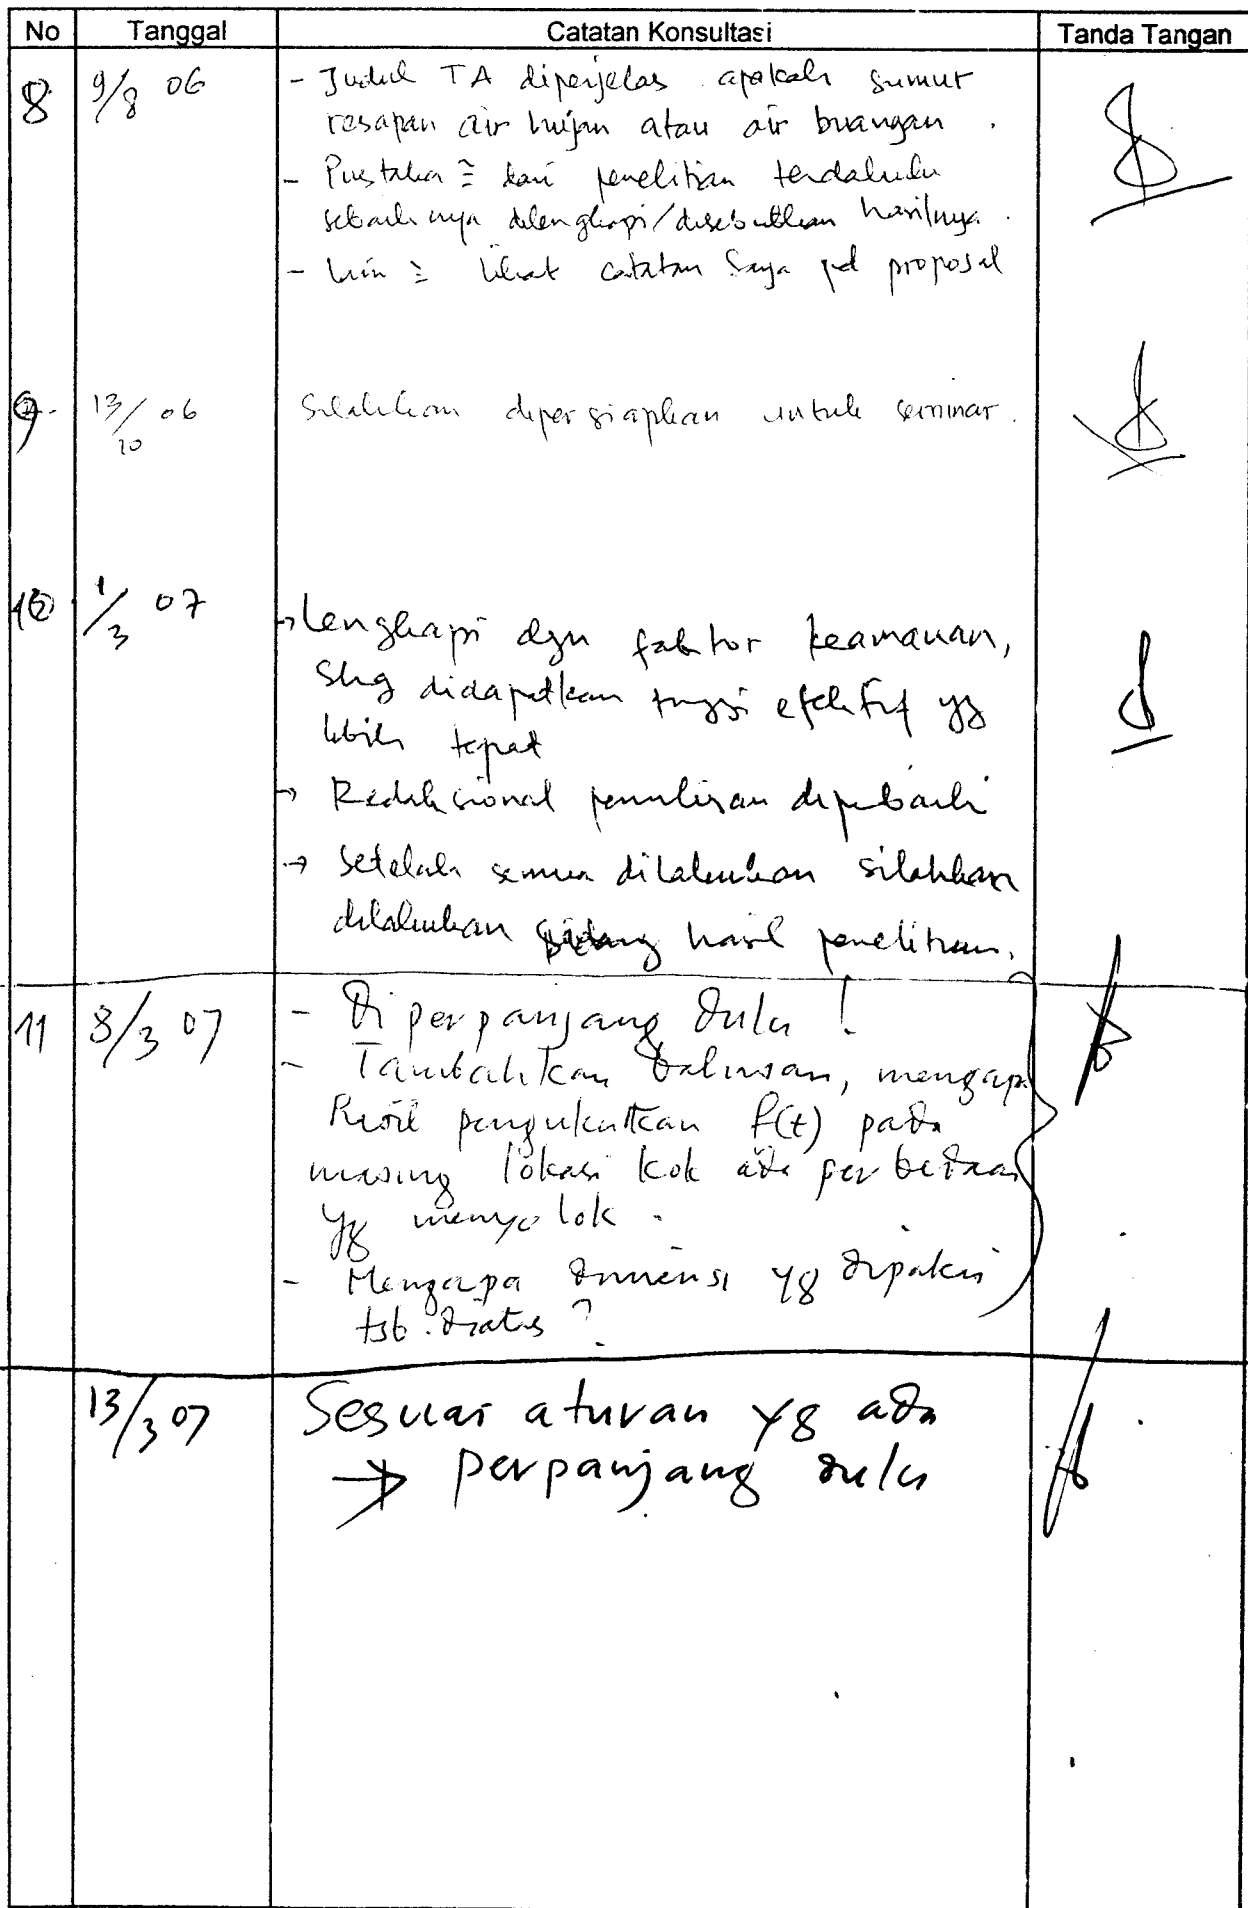 No Tanggal Catatan Konsultasi Tanda Tangan
8 9/8 06 - Judul TA diperjelas apakah sumur
resapan air hujan atau air buangan.
- Pustaka ² dari penelitian terdahulu
sebaiknya dilengkapi/disebutkan hasilnya.
- Lain ² lihat catatan saya pd proposal
9. 13/10 06 Silahkan dipersiapkan untuk seminar.
10 1/3 07 → Lengkapi dgn faktor keamanan,
shg didapatkan tinggi efektif yg
lebih tepat
→ Redaksional penulisan diperbaiki
→ Setelah semua dilakukan silahkan
dilakukan sidang hasil penelitian.
11 8/3 07 - Diperpanjang dulu!
- Tambahkan bahasan, mengapa
hasil pengukuran f(t) pada
masing lokasi kok ada perbedaan
yg menyolok.
- Mengapa dimensi yg dipakai
tsb. diatas?
13/3 07 Sesuai aturan yg ada
→ perpanjang dulu